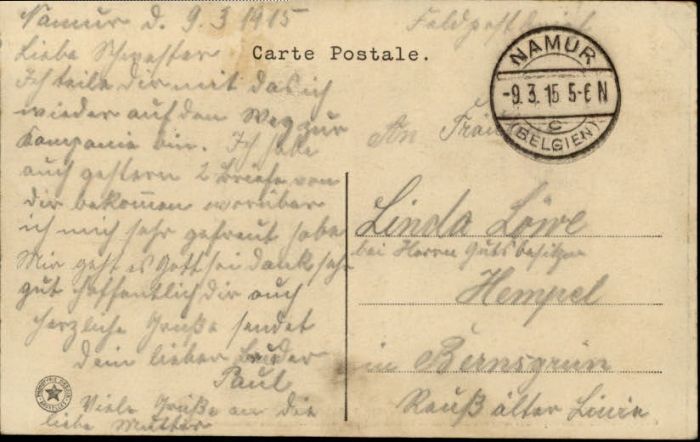 Namur d. 9.3.1915
Liebe Schwester
Ich teile dir mit das ich
wieder auf dem Weg zur
Kompanie bin. Ich habe
auch gestern 2 Briefe von
dir bekommen worüber
ich mich sehr gefreut habe
Mir geht es Gott sei dank sehr
gut hoffentlich dir auch
herzliche Grüße sendet
dein lieber Bruder
Paul
Viele Grüße an die
liebe Mutter
Carte Postale.
Feldpostbrief
NAMUR
-9.3.15 5-6 N
c
(BELGIEN)
An
Linda Löwe
bei Herrn Gutsbesitzer
Hempel
in Bernsgrün
Reuß älter Linie